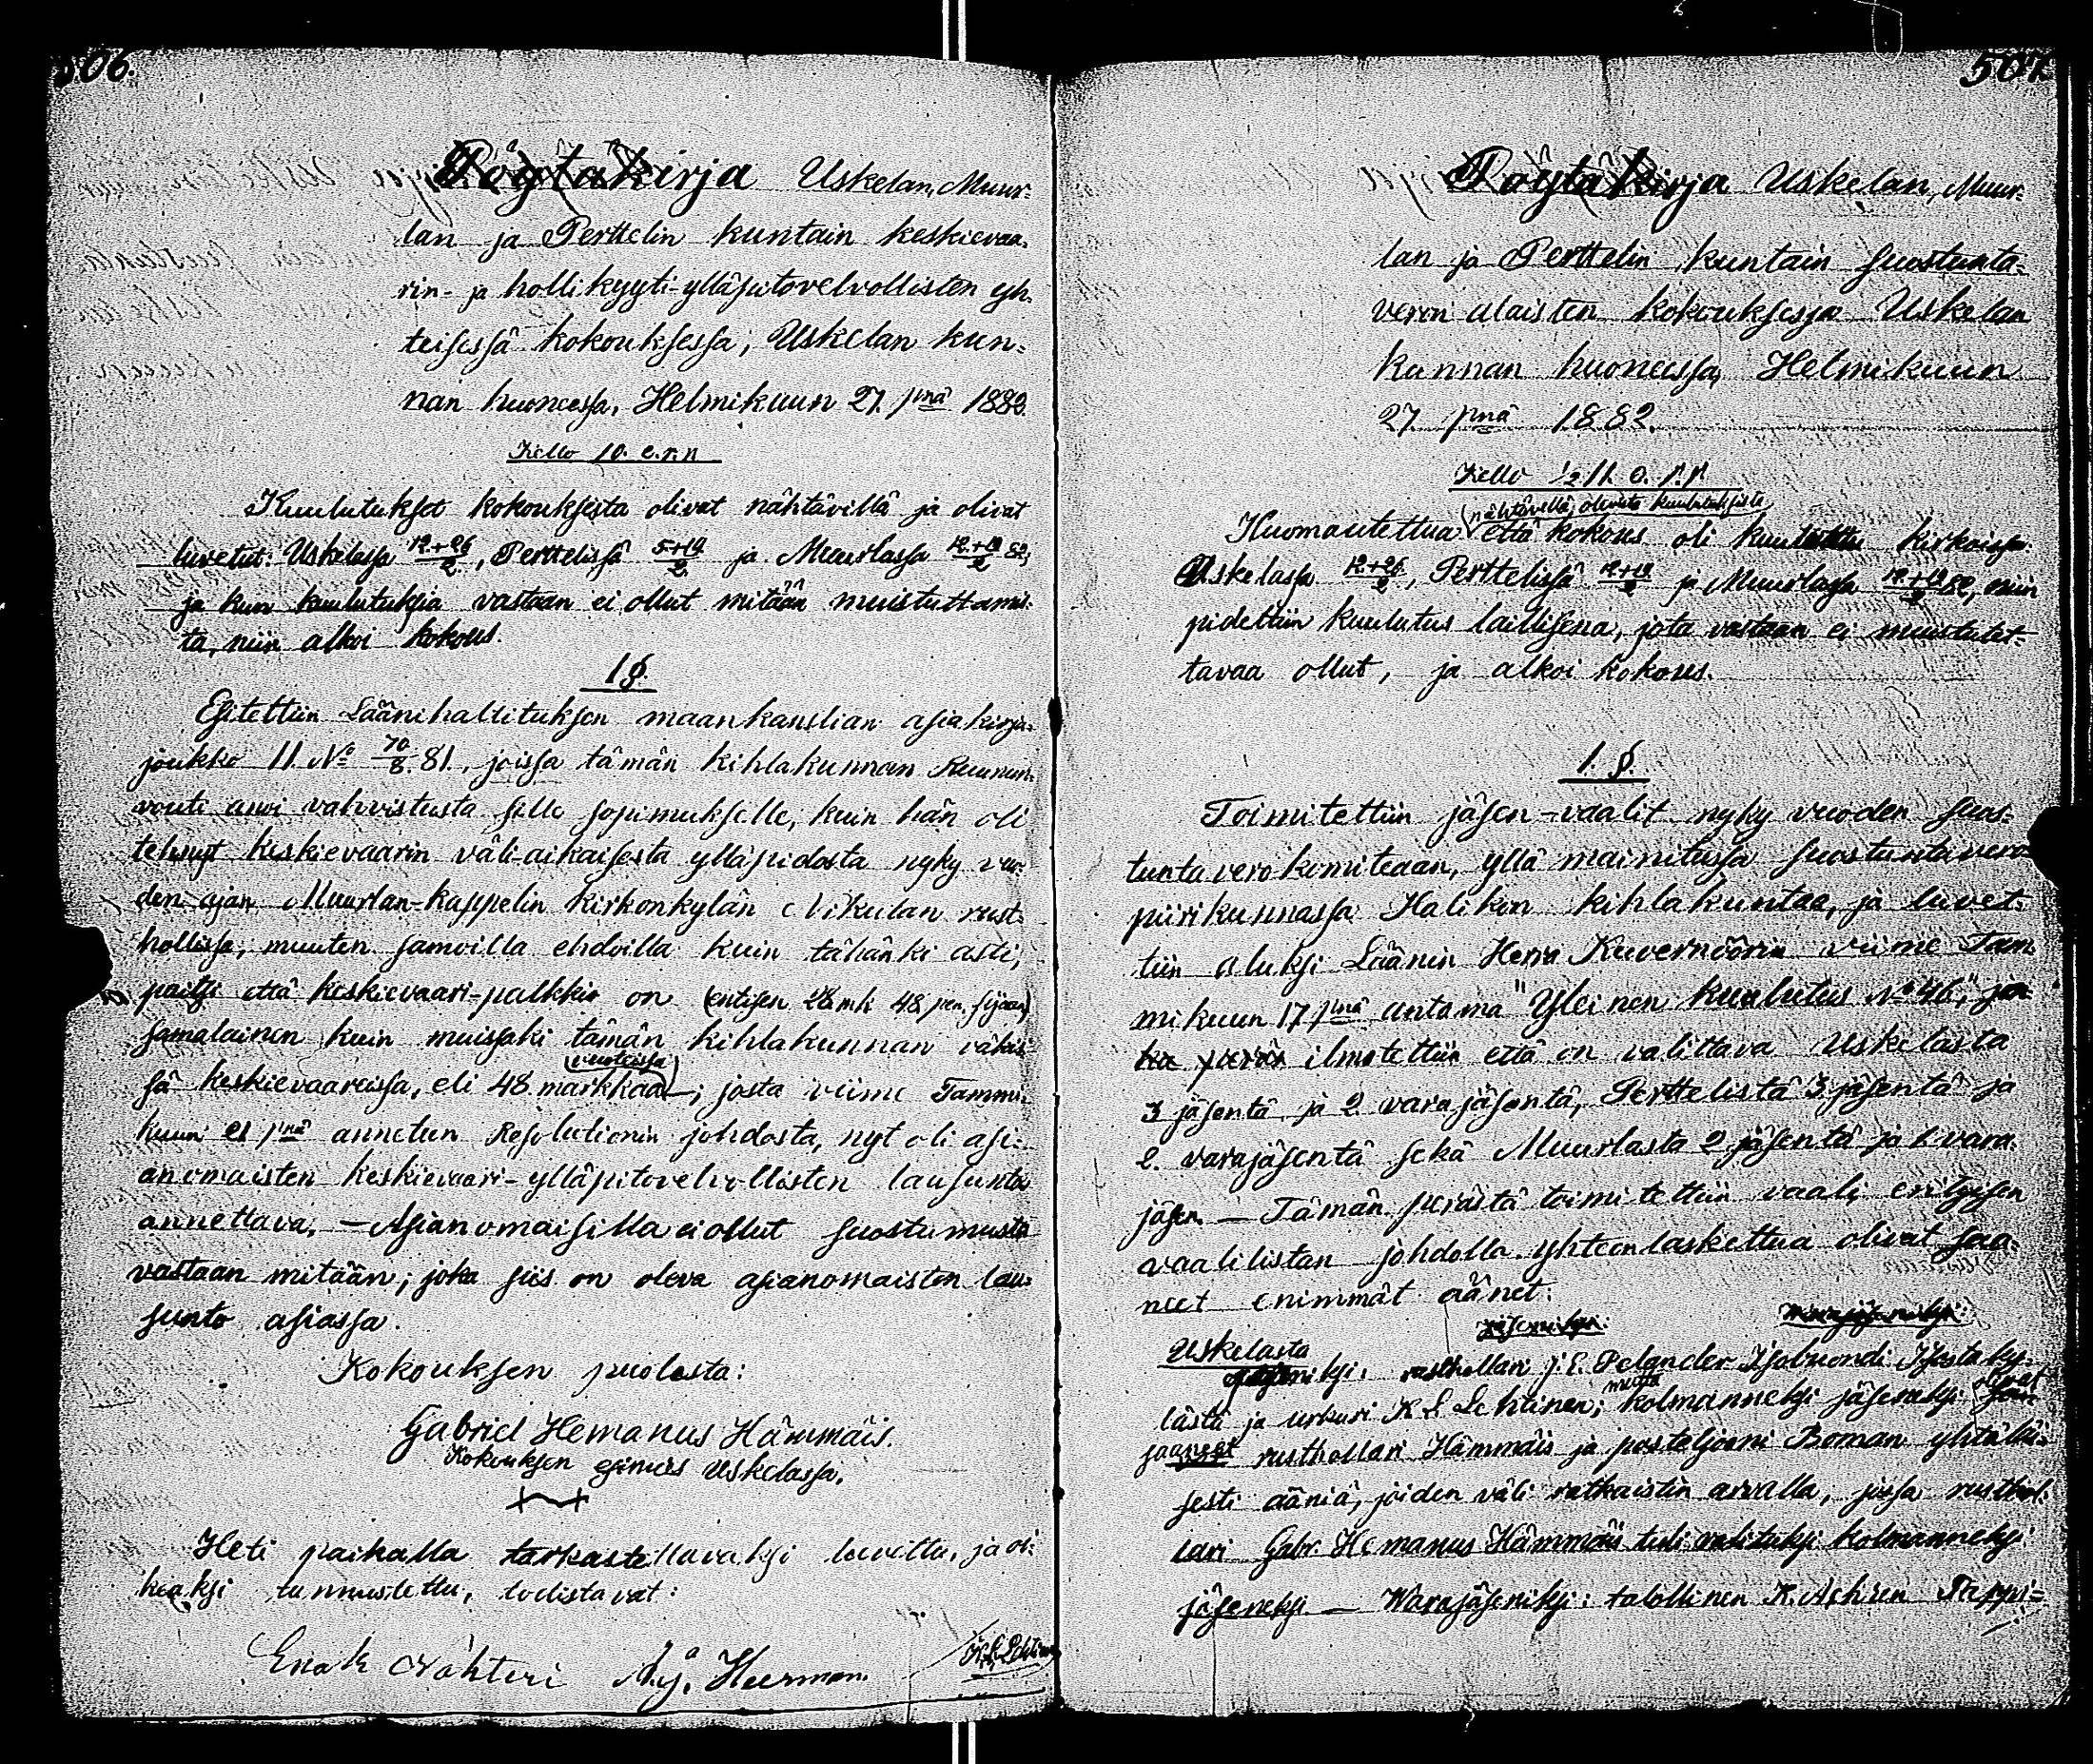 506.
Pöytäkirja Uskelan, Muur-
lan ja Perttelin kuntain keskievaa-
rin- ja hollikyyti-ylläpitovelvollisten yh-
teisessä kokouksessa, Uskelan kun-
nan huoneessa, Helmikuun 27. pnä 1882.
Kello 10. e.p.p.
Kuulutukset kokouksesta olivat nähtävillä ja olivat
luvetut: Uskelassa 12.+26/2., Perttelissä 5+19/2. ja Muurlassa 12.+19/2 82,
ja kun kuulutuksia vastaan ei ollut mitään muistuttamis-
ta, niin alkoi kokous.
1 §.
Esitettiin Läänihallituksen maankanslian asiakirja-
joukko 11. No 70/8. 81., joissa tämän kihlakunnan Ruunun-
vouti anoi vahvistusta sille sopimukselle, kuin hän oli
tehnyt keskievaarin väli-aikaisesta ylläpidosta nyky vuo-
den ajan Muurlan-kappelin kirkonkylän Nikulan rust-
hollissa, muuten samoilla ehdoilla kuin tähänki asti,
paitsi että keskievaari-palkkio on (entisen 28 mk 48 pen. sijaan)
samalainen kuin muissaki tämän kihlakunnan väkis-
sä keskievaareissa, eli 48. markkaa (vuoteissa) —; josta viime Tammi-
kuun 21 pnä annetun Resolutionin johdosta, nyt oli asi-
anomaisten keskievaari-ylläpitovelvollisten lausunto
annettava. — Asianomaisilla ei ollut suostumusta
vastaan mitään; joka siis on oleva asianomaisten lau-
sunto asiassa.
Kokouksen puolesta:
Gabriel Hemanus Hämmäis.
Kokouksen esimies Uskelassa.
Heti paikalla tarkastellavaksi luvettu, ja oi-
keaksi tunnustettu, todistavat:
Enok Nähteri A. J. Heerman. K. L. Lehtinen
507.
Pöytäkirja Uskelan, Muur-
lan ja Perttelin kuntain suostunta-
veron-alaisten kokouksessa Uskelan
kunnan huoneessa, Helmikuun
27. pnä 1882.
Kello ½ 11. e. p. p.
nähtävillä olevista kuulutuksista
Huomautettua että kokous oli kuulutettu kirkoissa:
Uskelassa 12+26/2, Perttelissä 12+19/2 ja Muurlassa 12+19/2 82, niin
pidettiin kuulutus laillisena, jota vastaan ei muistutet-
tavaa ollut, ja alkoi kokous.
1. §.
Toimitettiin jäsen-vaalit nyky vuoden suos-
tuntaverokomiteaan, yllä mainitussa suostuntavero
piirikunnassa Halikon kihlakuntaa, ja luvet-
tiin aluksi Läänin Herra Kuvernöörin viime Tam-
mikuun 17 pnä antama "Yleinen kuulutus No 46",
ilmotettiin että on valittava Uskelasta
3 jäsentä ja 2 varajäsentä, Perttelistä 3 jäsentä ja
2. varajäsentä sekä Muurlasta 2 jäsentä ja 1 vara-
jäsen. — Tämän perästä toimitettiin vaali, erityisen
vaalilistan johdolla. yhteenlaskettua olivat saa-
neet enimmät äänet:
jäseniksi: varajäseniksi:
Uskelasta
jäseniksi: rusthollari J. E. Pelander Isobuondi Isostaky-
lästä ja urkuri K. L. Lehtinen; mutta kolmanneksi jäseneksi olivat
saaneet rusthollari Hämmäis ja posteljooni Boman yhtäläi-
sesti ääniä, joiden väli ratkaistiin arvalla, jossa rusthol-
lari Gabr. Hemanus Hämmäis tuli valituksi kolmanneksi
jäseneksi. — Warajäseniksi: talollinen K. Achren Pappi-